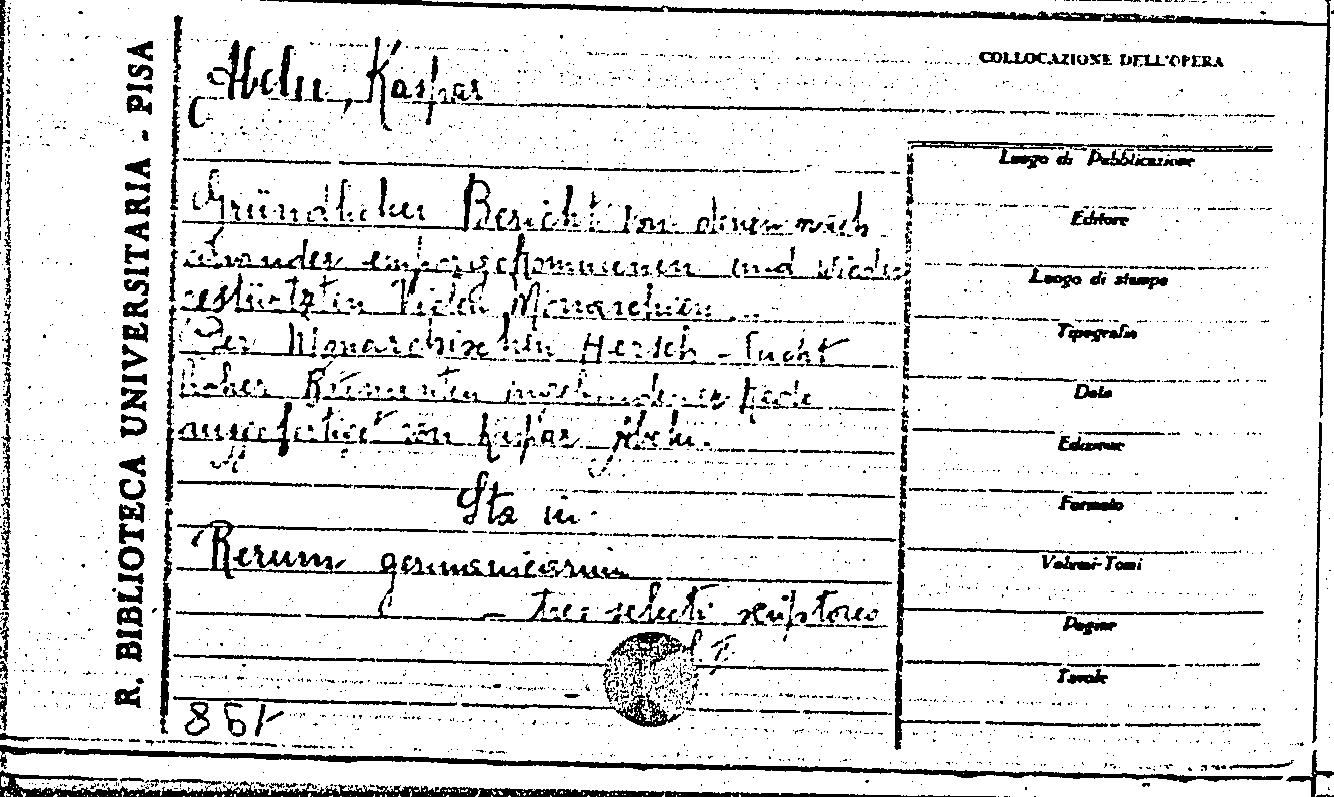 R. BIBLIOTECA UNIVERSITARIA - PISA
COLLOCAZIONE DELL'OPERA
Abelu, Kaspar
Gründlicher Bericht von denen nach
einander emporgekommenen und wieder
gestürtzten Vielen Monarchien...
Der Monarchischen Hersch-Sucht
ausgefertiget von Kaspar Abelu.
Sta in
Rerum germanicarum
- tres selecti scriptores
861
Luogo di Pubblicazione
Editore
Luogo di stampa
Tipografia
Data
Edizione
Formato
Volumi-Tomi
Pagine
Tavole